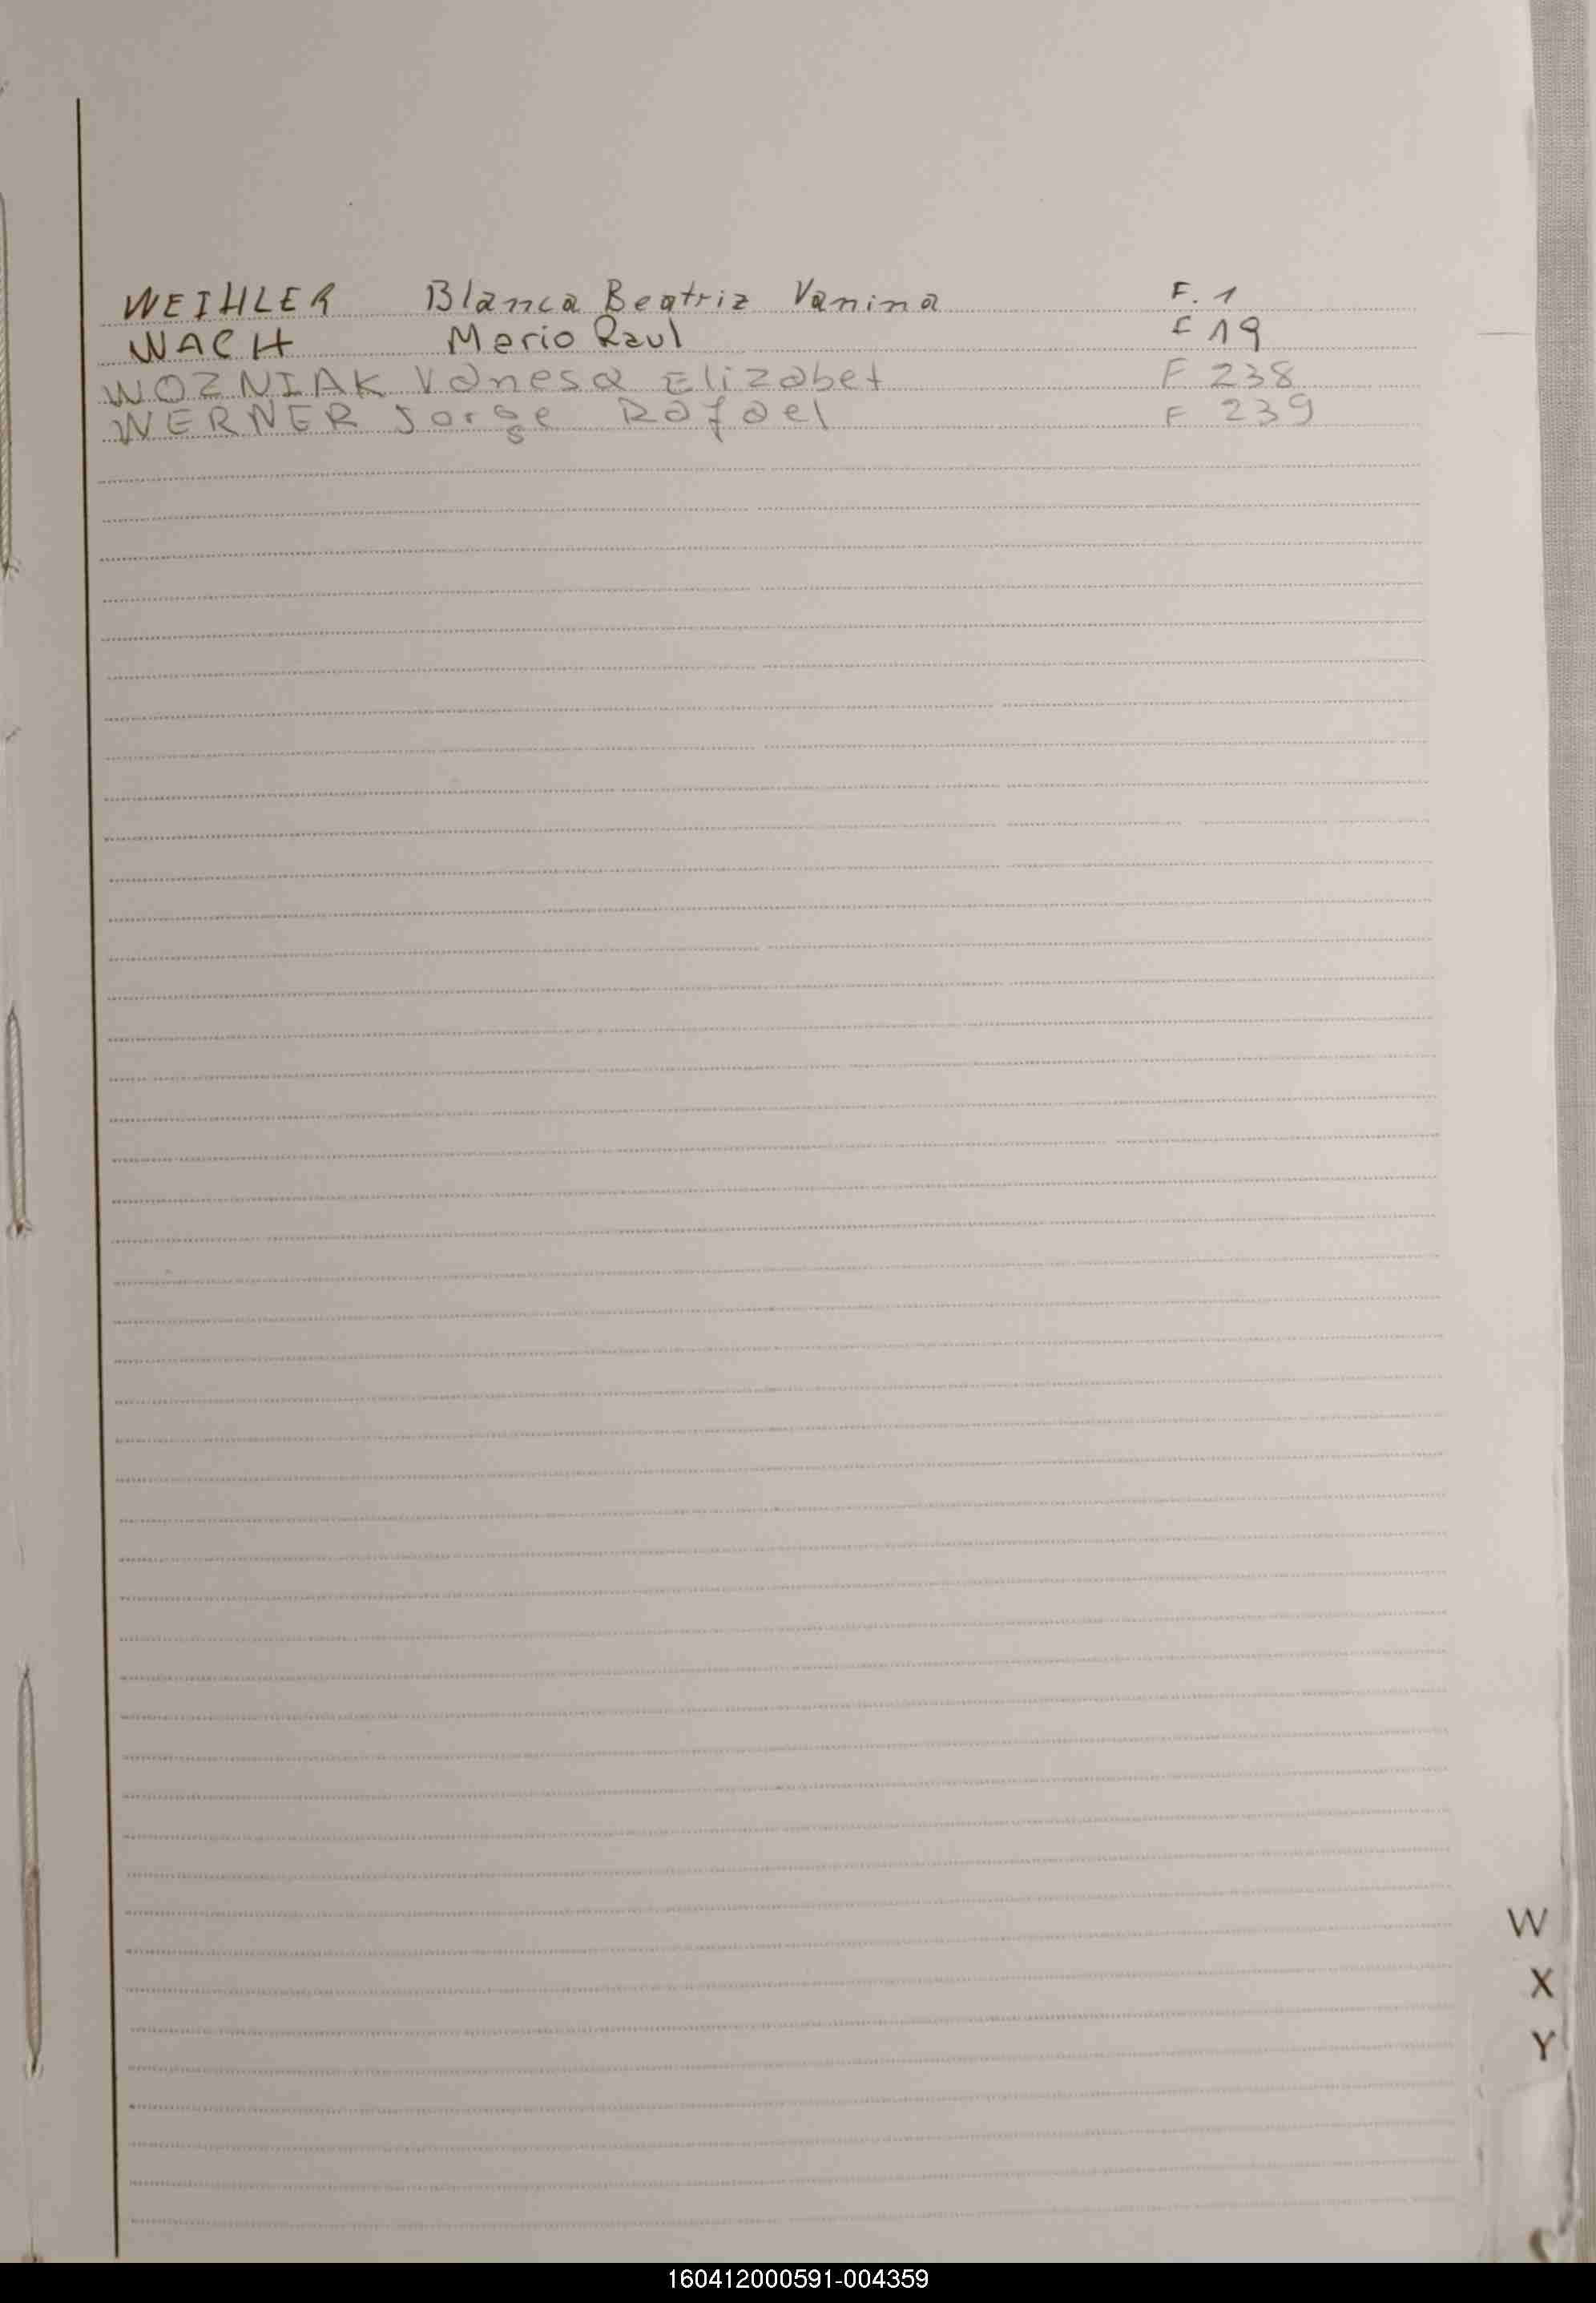 WEIHLER Blanca Beatriz Vanina F. 1
WACH Mario Raul F 19
WOZNIAK Vanesa Elizabet F 238
WERNER Jorge Rafael F 239
W
X
Y
160412000591-004359